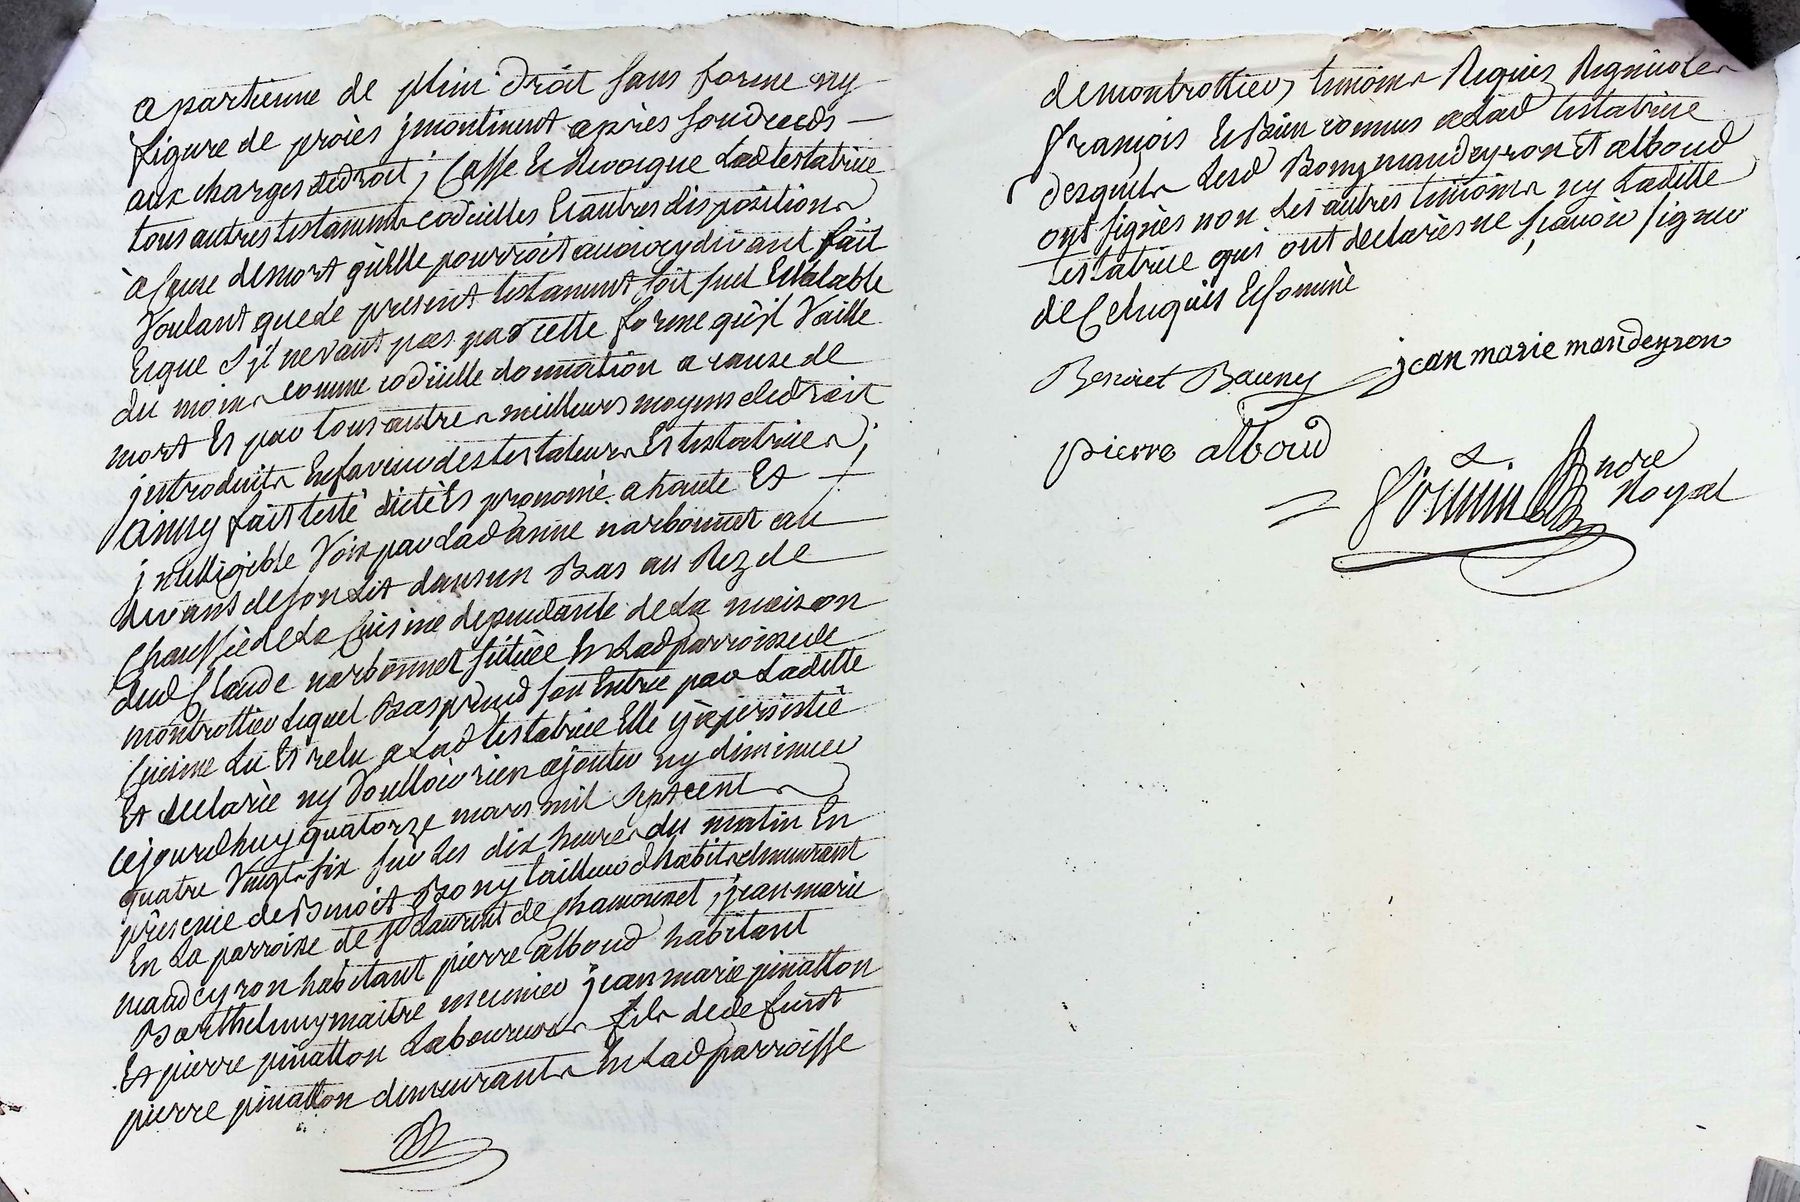 apartienne de plein droit sans forme ny
figure de procès jncontinent après son deceds
aux charges de droit ; Casse Et Revoque Lad testatrice
tous autres testaments codicilles Et autres dispositions
à Cause de mort qu'elle pourroit avoir cy devant fait
Voulant que le present testament soit seul Et Valable
Et que s'jl ne vaut pas par cette forme qu'jl Vaille
du moins comme codicille donnation a cause de
mort Et par tous autres meilleurs moyens de droit
jntroduits En faveur des testateurs Et testatrices ;
ainsy fait testé dicté Et prononcé a haute Et
jntelligible Voix par Lad anne narbonnet au
devant de son Lit dans un Bas au Rez de
Chaussée de La Cuisine dependante de La maison
dud Claude narbonnet située En Lad parroisse de
montrottier Lequel Bas prend son Entrée par Laditte
Cuisine Lu Et relu a Lad testatrice Elle y a persistée
Et declarée ny Voulloir rien ajouter ny diminuer
cejourd'huy quatorze mars mil sept cent
quatre Vingt six sur Les dix heures du matin En
présence de Benoit Bony tailleur d'habits demeurant
En La parroisse de st Laurent de Chamousset , jean marie
mandeyron habitant pierre alboud habitant
Barthelemy maitre meunier jean marie pinatton
Et pierre pinatton Laboureurs fils de defunt
pierre pinatton demeurants En Lad parroisse
de montrottier, temoins Requis Regnicoles
françois Et Bien connus a Lad testatrice
desquels Lesd Bony mandeyron Et alboud
ont signés non Les autres temoins ny Laditte
testatrice qui ont declarés ne sçavoir signer
de Ce Enquis Et sommé
Benoiet Bauny jean marie mandeyron
pierre alboud
nore
Royal